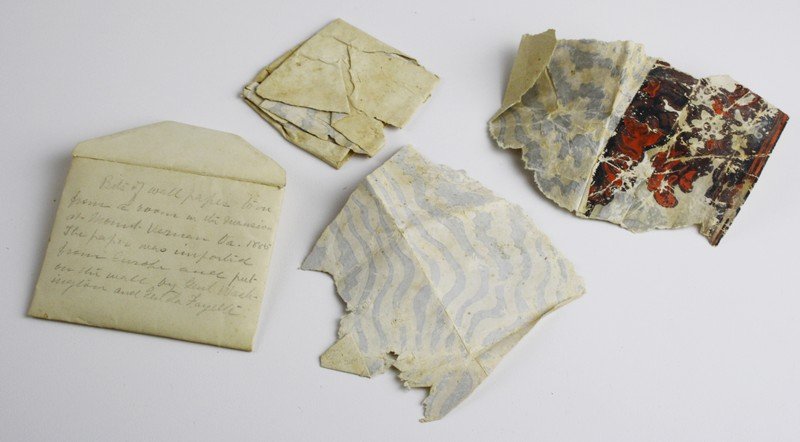 Bits of wall paper torn
from a room in the mansion
at Mount Vernon Va. 1885
The paper was imported
from Europe and put
on the wall by Genl Wash-
ington and La Fayette